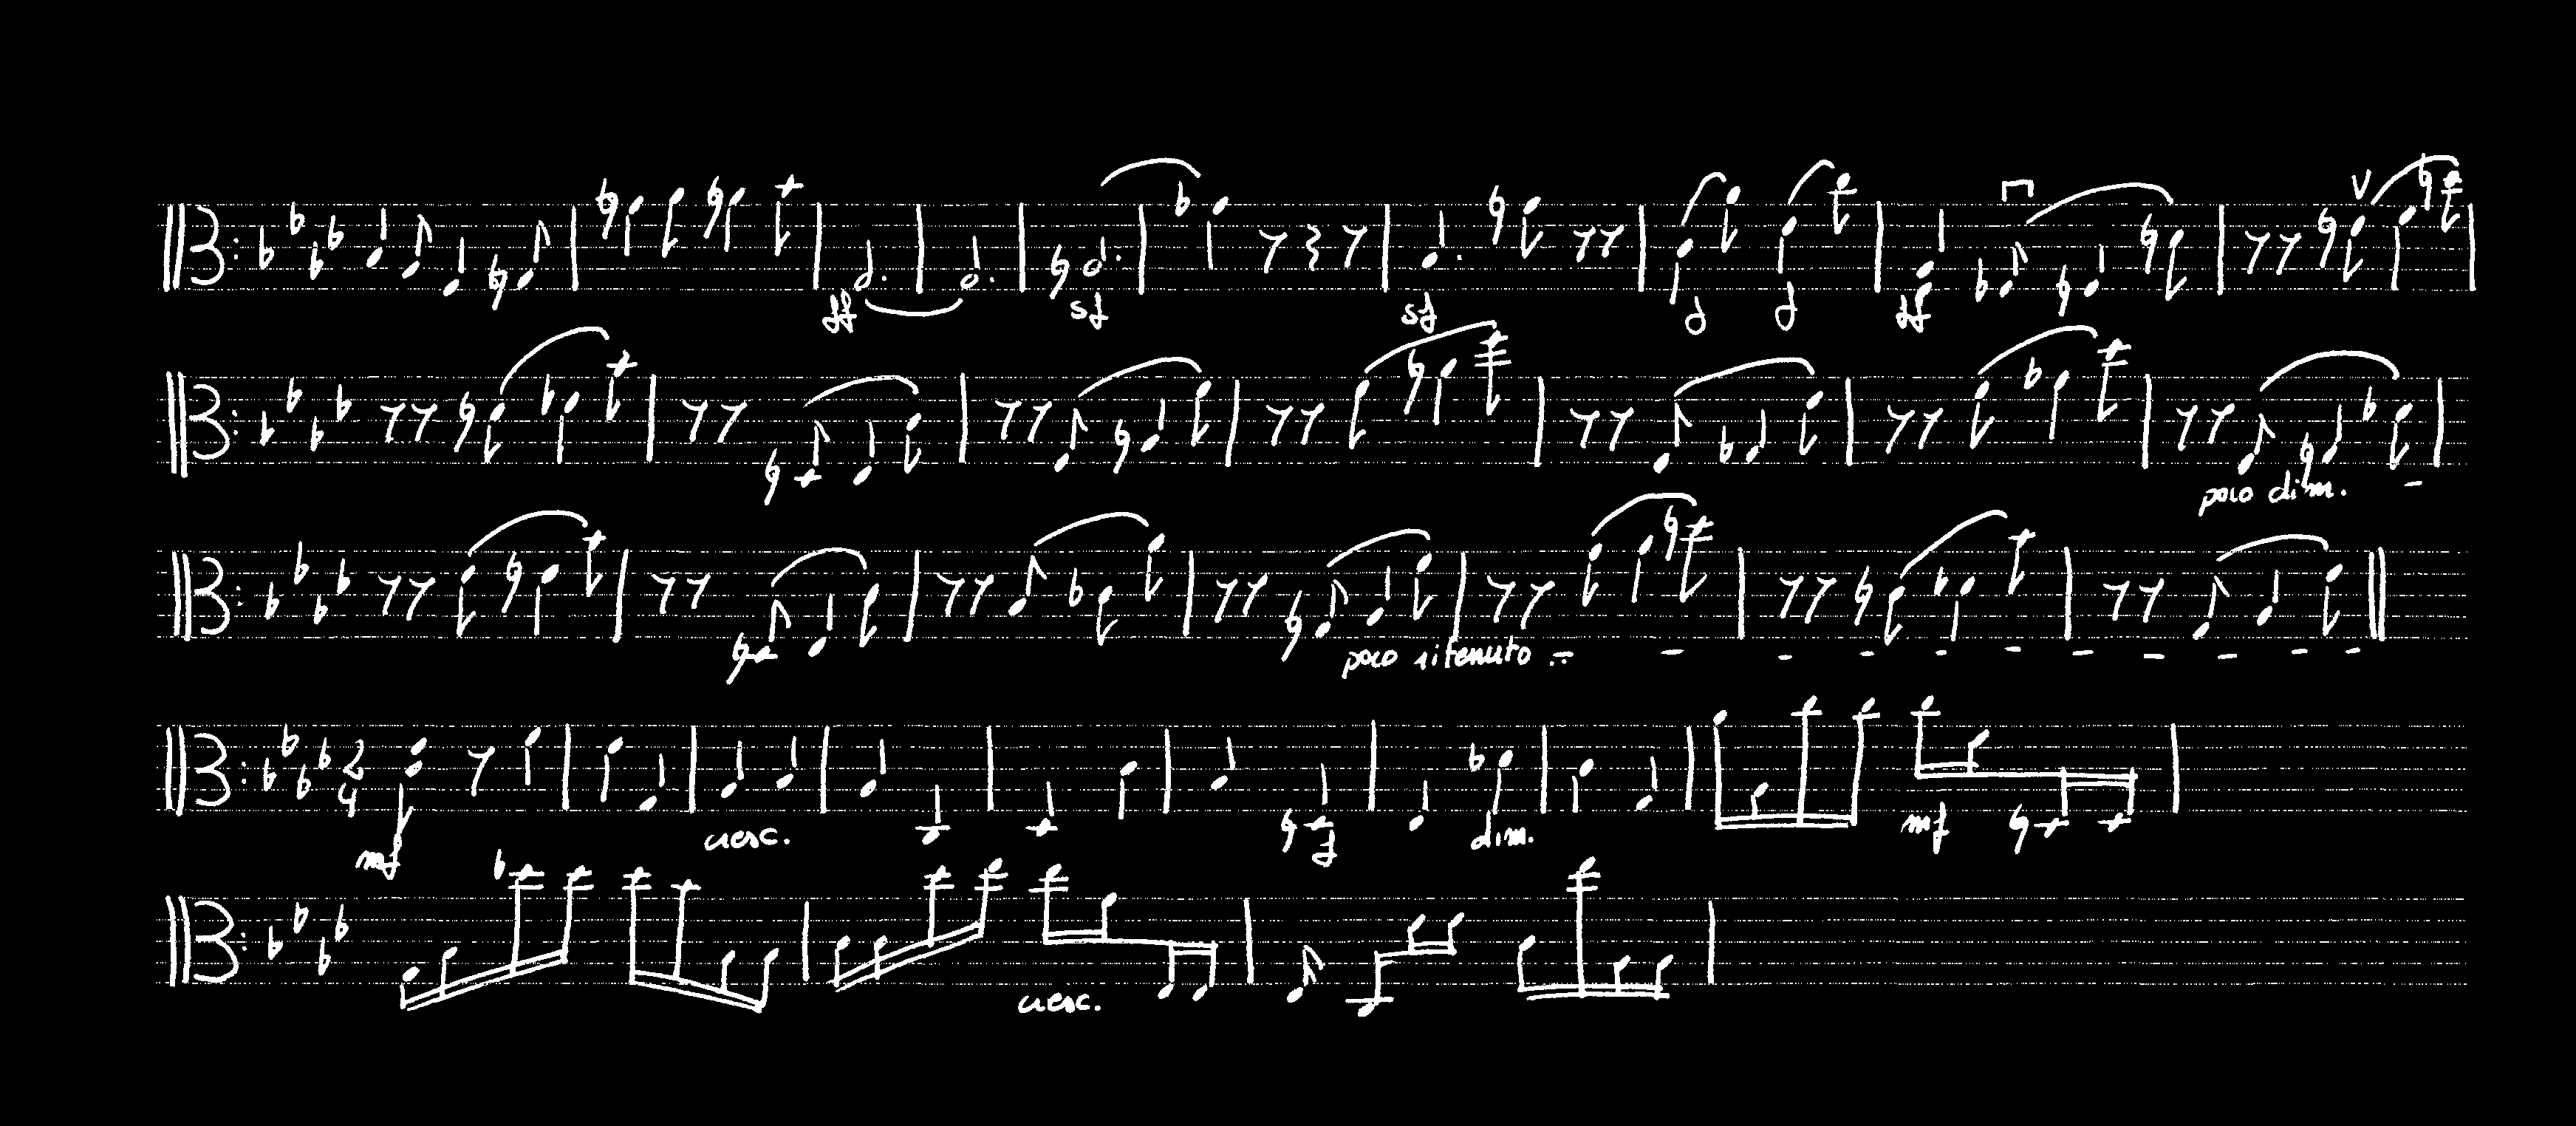 ff sf sf ff
poco dim. -
poco ritenuto
2 4
mf cresc. f dim. mf
cresc.